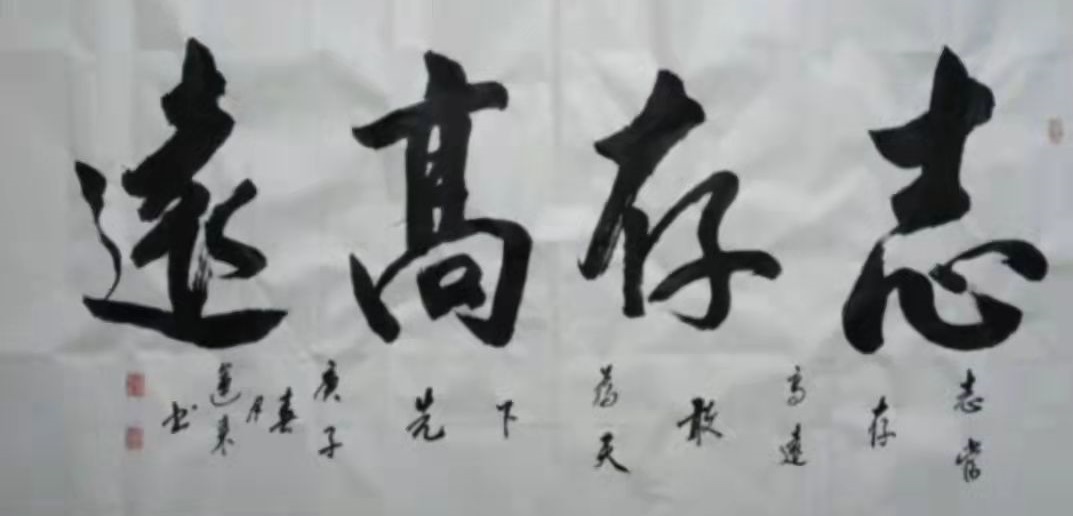 志存高遠
志當存高遠敢為天下先
庚子春月
書